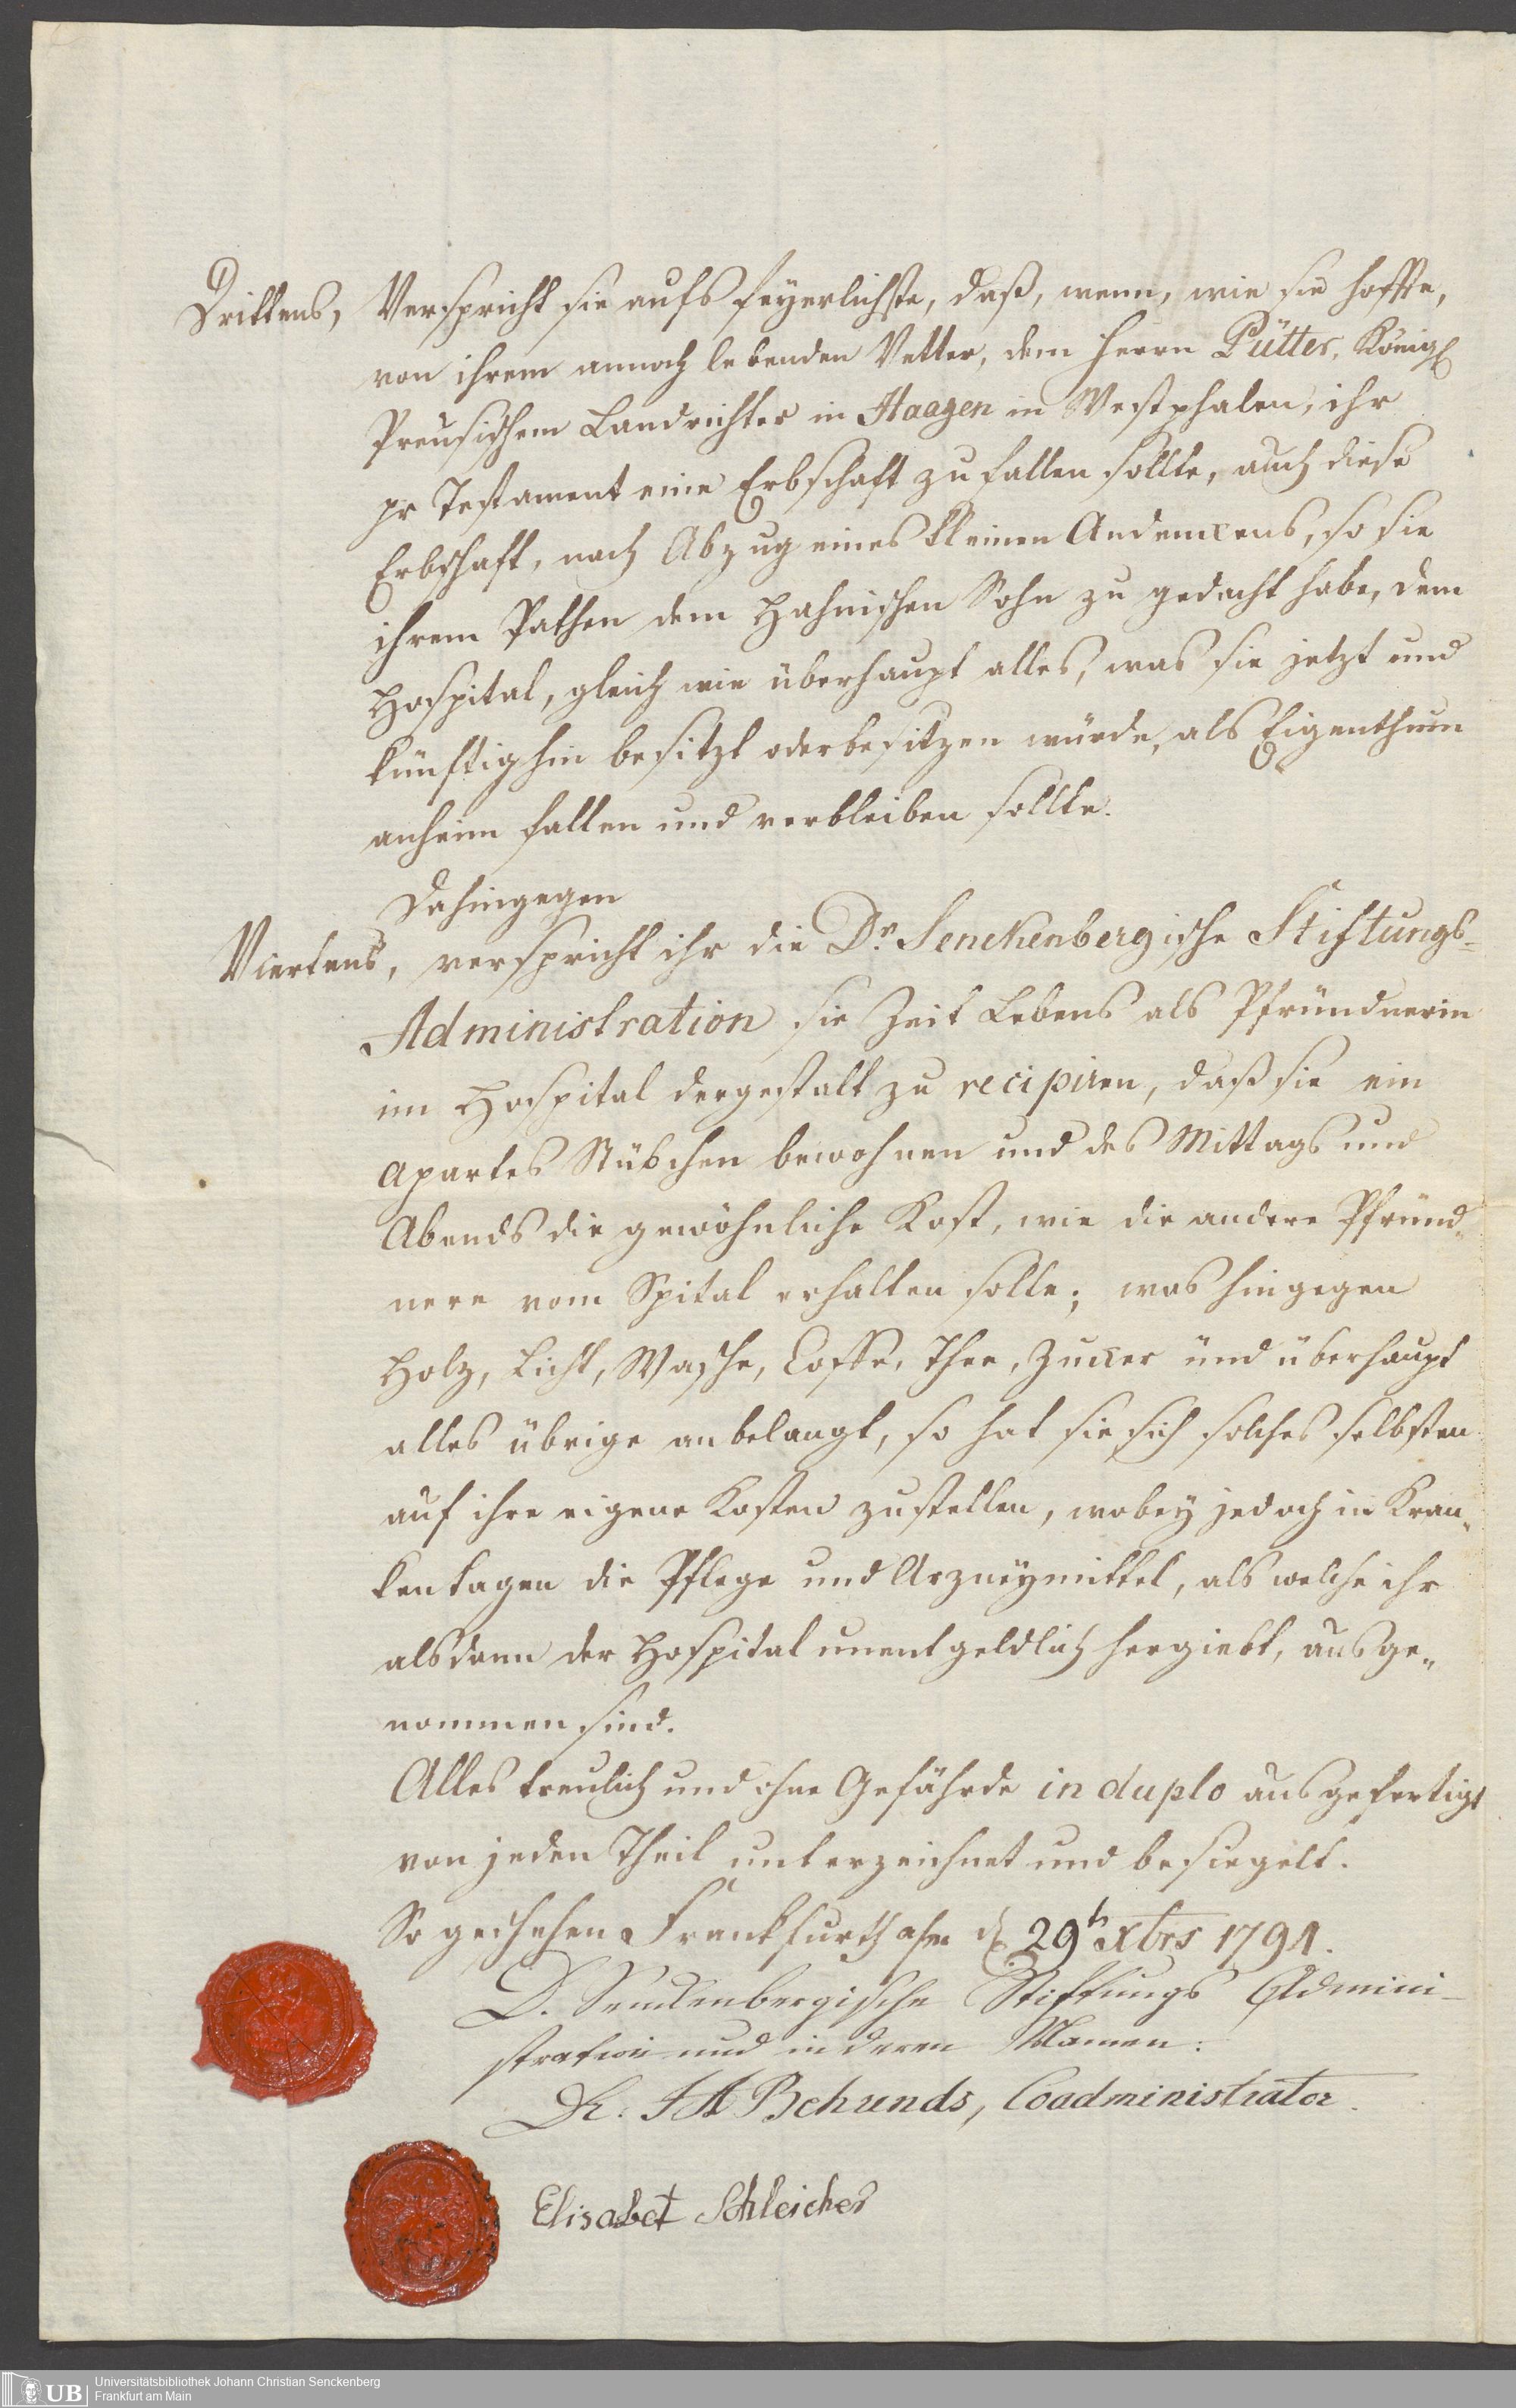 Drittens, Verspricht sie aufs feyerlichste, daß, wenn, wie sie hoffte,
von ihrem annoch lebenden Vetter, dem Herrn Pütter, Königl
Preusischem Landrichter in Haagen in Westphalen, ihr
pr Testament eine Erbschaft zu fallen sollte, auch diese
Erbschaft, nach Abzug eines kleinen Andenckens, so sie
ihrem Pathen dem Hahnischen Sohn zu gedacht habe, dem
Hospital, gleich wie überhaupt alles, was sie jetzt und
künftighin besitzt oder besitzen würde, als Eigenthum
anheim fallen und verbleiben sollte.
Dahingegen
Viertens, verspricht ihr die Dr. Senckenbergische Stiftungs-
Administration sie Zeit Lebens als Pfründnerin
im Hospital dergestalt zu recipiren, daß sie ein
apartes Stübchen bewohnen und des Mittags und
Abends die gewöhnliche Kost, wie die andere Pfründ„
nere vom Spital erhalten solle; was hingegen
Holz, Licht, Wasche, Coffe, Thee, Zucker und überhaupt
alles übrige anbelangt, so hat sie sich solches selbsten
auf ihre eigene Kosten zustellen, wobey jedoch in Kran„
kentagen die Pflege und Arzneymittel, als welche ihr
alsdann der Hospital unentgeldlich hergiebt, ausge„
nommen sind.
Alles treulich und ohne Gefährde in duplo ausgefertigt
von jeden Theil unterzeichnet und besiegelt.
So geschehen Frankfurth a/m d 29t Xbrs 1794.
D. Senckenbergische Stiftungs Admini-
stration und in deren Namen:
Dr. J A Behrends, Coadministrator.
Elisabet Schleicher
UB
Universitätsbibliothek Johann Christian Senckenberg
Frankfurt am Main